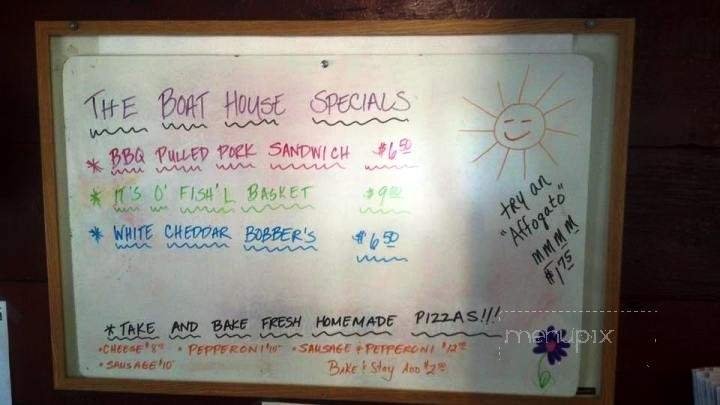 THE BOAT HOUSE SPECIALS
* BBQ PULLED PORK SANDWICH $6.50
* IT'S O' FISH'L BASKET $9.00
* WHITE CHEDDAR BOBBER'S $6.50
try an
"Affogato"
MMMM
$1.75
*TAKE AND BAKE FRESH HOMEMADE PIZZAS!!!
• CHEESE $8.00 • PEPPERONI $10.00 • SAUSAGE & PEPPERONI $12.00
• SAUSAGE $10.00 BAKE & Stay ADD $2.50
menupix